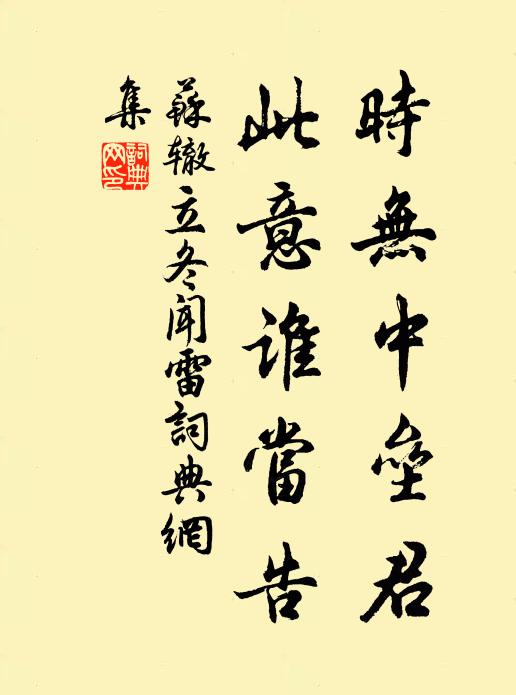 時無中壘君
此意誰當告
蘇辙立冬聞雷詞典網
集
詞典網印